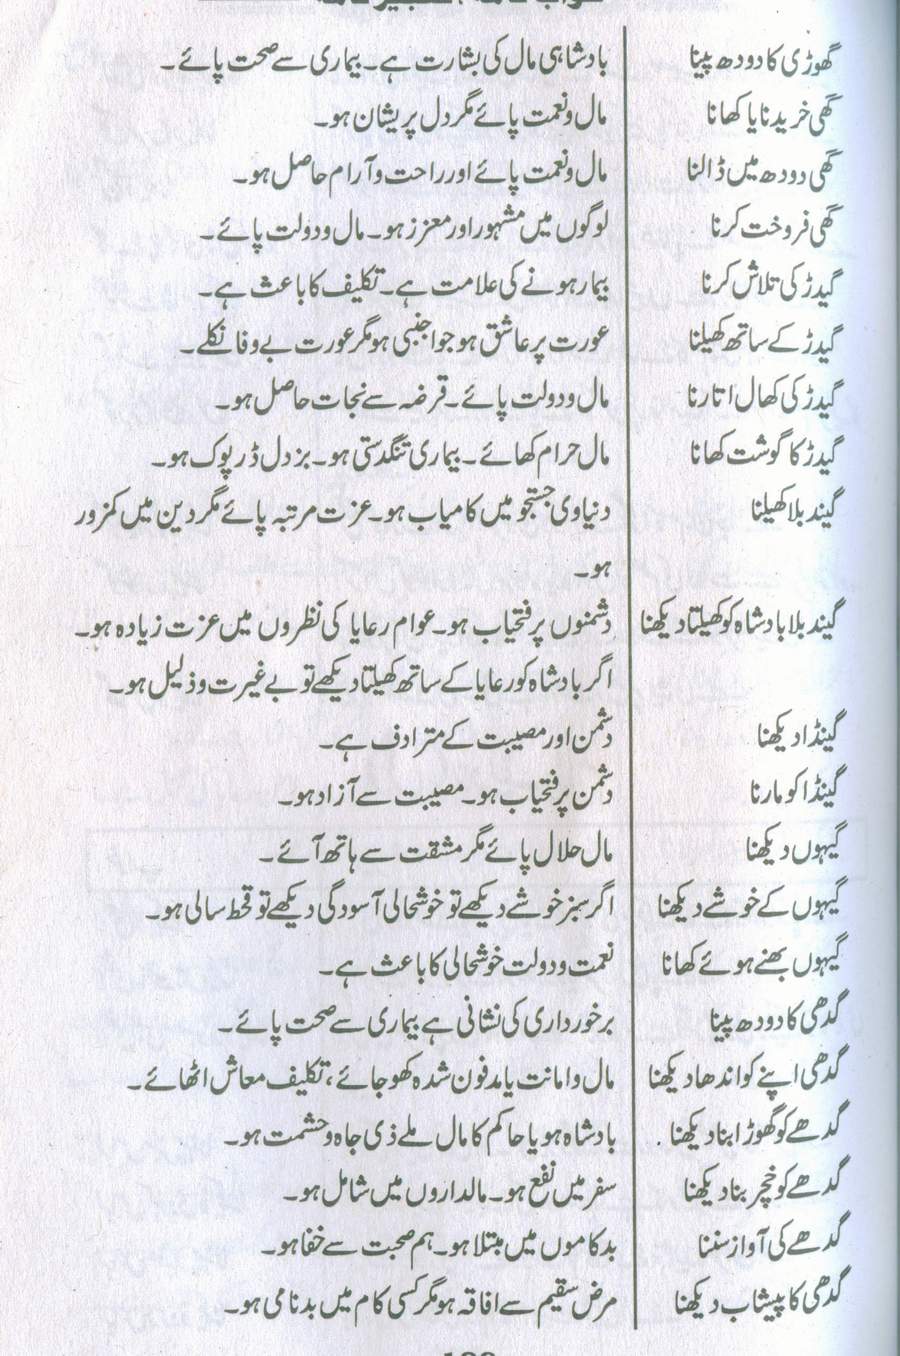 گھوڑی کا دودھ پینا بادشاہی مال کی بشارت ہے۔ بیماری سے صحت پائے۔
گھی خریدنا یا کھانا مال و نعمت پائے مگر دل پریشان ہو۔
گھی دودھ میں ڈالنا مال و نعمت پائے اور راحت و آرام حاصل ہو۔
گھی فروخت کرنا لوگوں میں مشہور اور معزز ہو۔ مال و دولت پائے۔
گیدڑ کی تلاش کرنا بیمار ہونے کی علامت ہے۔ تکلیف کا باعث ہے۔
گیدڑ کے ساتھ کھیلنا عورت پر عاشق ہو جو اجنبی ہو مگر عورت بے وفا نکلے۔
گیدڑ کی کھال اتارنا مال و دولت پائے۔ قرضہ سے نجات حاصل ہو۔
گیدڑ کا گوشت کھانا مال حرام کھائے۔ بیماری تنگدستی ہو۔ بزدل ڈرپوک ہو۔
گیند بلا کھیلنا دنیاوی جستجو میں کامیاب ہو۔ عزت مرتبہ پائے مگر دین میں کمزور
ہو۔
گیند بلا بادشاہ کو کھیلتا دیکھنا دشمنوں پر فتحیاب ہو۔ عوام رعایا کی نظروں میں عزت زیادہ ہو۔
اگر بادشاہ کو رعایا کے ساتھ کھیلتا دیکھے تو بے غیرت و ذلیل ہو۔
گینڈا دیکھنا دشمن اور مصیبت کے مترادف ہے۔
گینڈا کو مارنا دشمن پر فتحیاب ہو۔ مصیبت سے آزاد ہو۔
گیہوں دیکھنا مال حلال پائے مگر مشقت سے ہاتھ آئے۔
گیہوں کے خوشے دیکھنا اگر سبز خوشے دیکھے تو خوشحالی آسودگی دیکھے تو قحط سالی ہو۔
گیہوں بھنے ہوئے کھانا نعمت و دولت خوشحالی کا باعث ہے۔
گدھی کا دودھ پینا برخورداری کی نشانی ہے بیماری سے صحت پائے۔
گدھی اپنے کو اندھا دیکھنا مال و امانت یا مدفون شدہ کھو جائے، تکلیف معاش اٹھائے۔
گدھے کو گھوڑا بنا دیکھنا۔ بادشاہ ہو یا حاکم کا مال ملے ذی جاہ و حشمت ہو۔
گدھے کو خچر بنا دیکھنا سفر میں نفع ہو۔ مالداروں میں شامل ہو۔
گدھے کی آواز سننا بدکاموں میں مبتلا ہو۔ ہم صحبت سے خفا ہو۔
گدھی کا پیشاب دیکھنا مرض سقیم سے افاقہ ہو مگر کسی کام میں بدنامی ہو۔